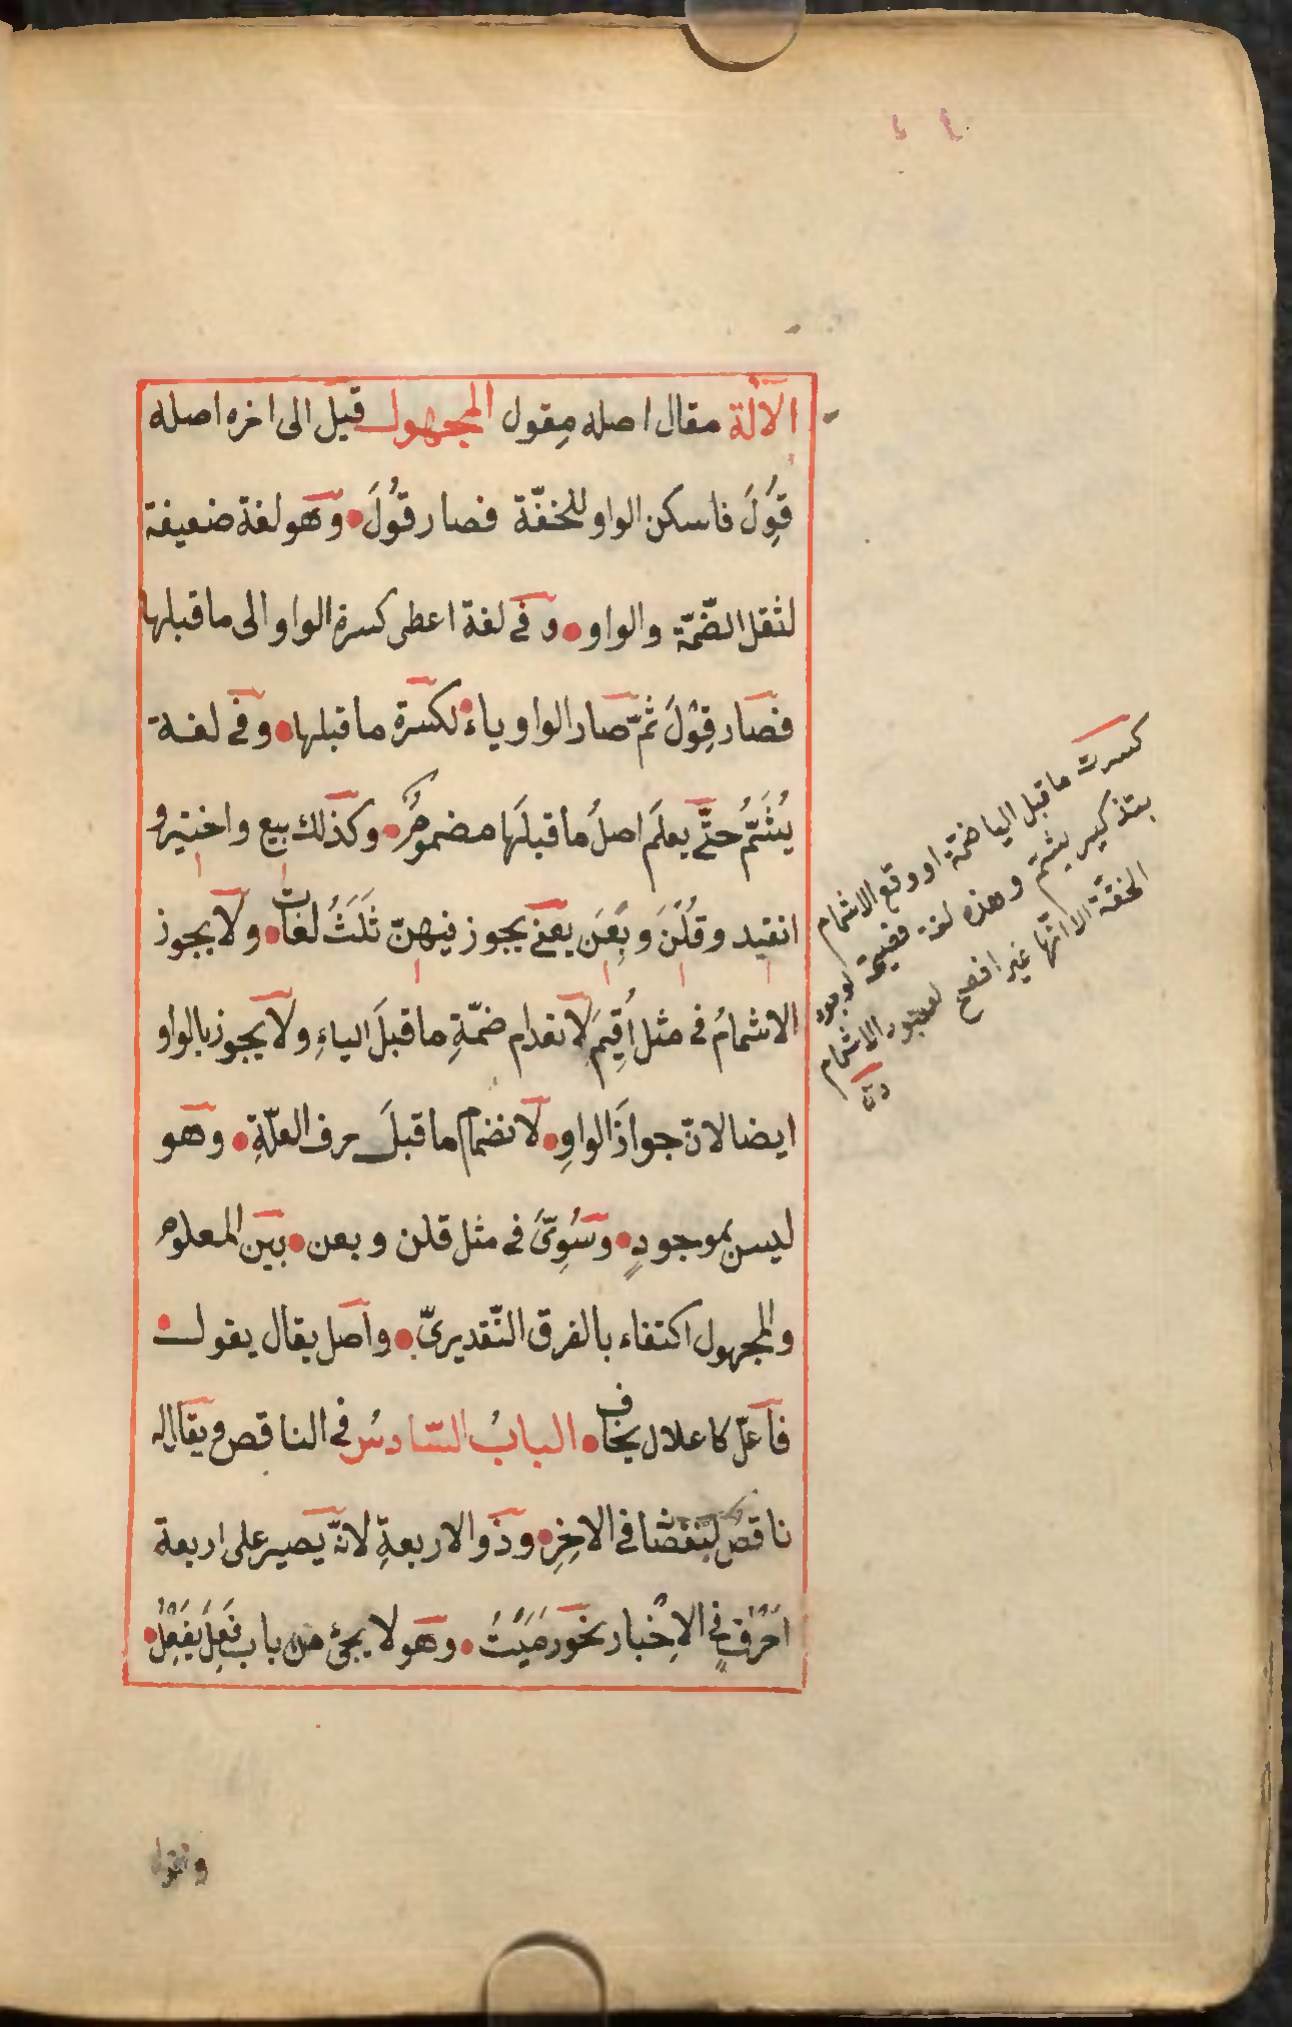 الآلة مقال اصله مِقول المجهول قيل الى اخره اصله
قُوِلَ فاسكن الواو للخفّة فصار قُولَ وهو لغة ضعيفة
لثقل الضّمّة والواو وفي لغة اعطى كسرة الواو الى ما قبلها
فصار قِوْلَ ثمّ صار الواو ياء لكسرة ما قبلها وفي لغة
يُشَمُّ حتّى يعلَم اصلُ ما قبلَها مضمومٌ وكذلك بيع واختير و
انقيد وقُلْنَ وبِعْنَ يعنى يجوز فيهنّ ثَلَثُ لغات ولا يجوز
الاشمامُ فى مثل اُقِيمَ لانعدام ضمّةِ ما قبلَ الياءِ ولا يجوز بالواو
ايضا لانّ جوازَ الواوِ لانضمام ما قبلَ حرف العلّةِ وهو
ليس بموجودٍ وسُوِّىَ فى مثل قلن وبعن بين المعلوم
والمجهول اكتفاء بالفرق التّقديرىّ واصل يقال يقول
فاعلّ كاعلال يخاف البابُ السّادسُ فى الناقص ويقال له
ناقصٌ لنقصان فى الاخِرِ وذو الاربعةِ لانّه يصير على اربعة
احرُفٍ فى الاِخْبار نحو رَمَيْتُ وهو لا يجئ من باب فَعِلَ يَفْعِلُ
كسرت ما قبل الياء ضمّة او وقع الاشمام
بتذكير يشمّ وهذه لغة فصيحة لوجود
الخفّة الا انّها غير افصح الاشمام
وتقول